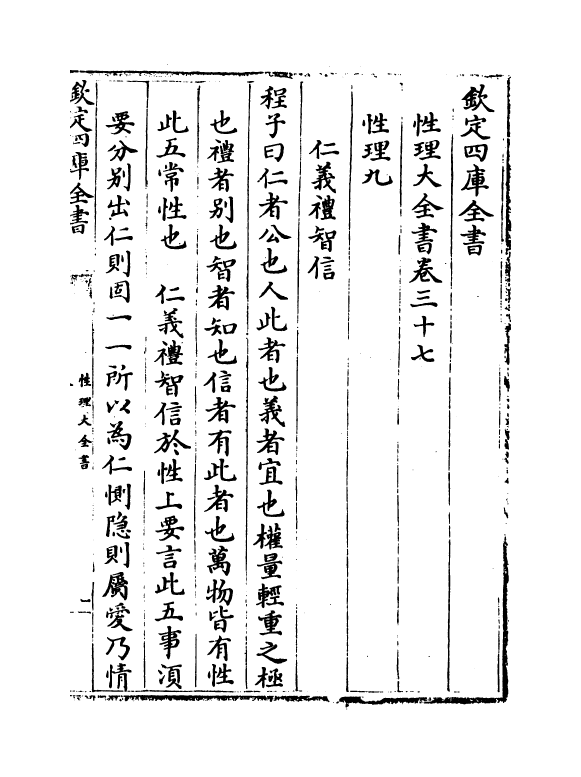 欽定四庫全書
性理大全書卷三十七
性理九
仁義禮智信
程子曰仁者公也人此者也義者宜也權量輕重之極
也禮者别也智者知也信者有此者也萬物皆有性
此五常性也　仁義禮智信於性上要言此五事須
要分别出仁則固一一所以為仁惻隐則屬愛乃情
欽定四庫全書
性理大全書
一